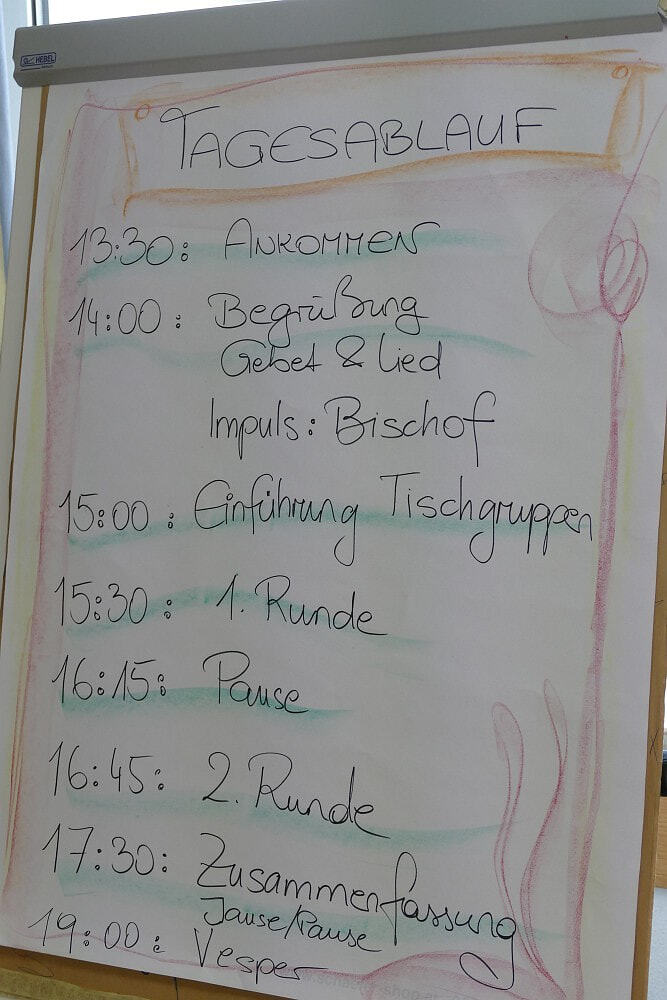 HEBEL
TAGESABLAUF
13:30: ANKOMMEN
14:00: Begrüßung
Gebet & Lied
Impuls: Bischof
15:00: Einführung Tischgruppen
15:30: 1. Runde
16:15: Pause
16:45: 2. Runde
17:30: Zusammenfassung
Jause/Pause
19:00: Vesper